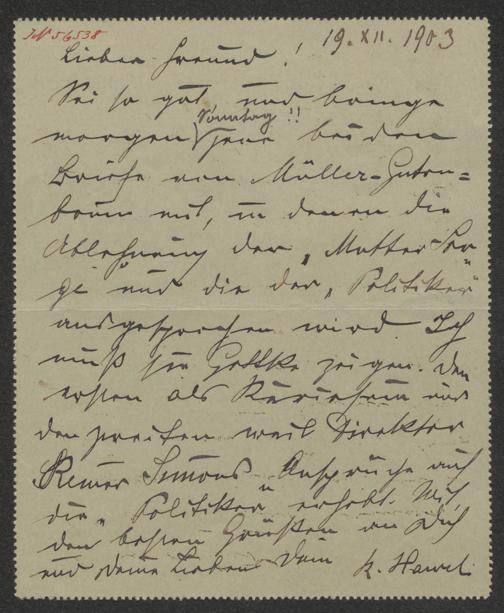 IN 56538
19. XII. 1903
Lieber Freund!
Sei so gut und bringe
morgen Sonntag!! jene beiden
Briefe von Müller-Guten=
brunn mit, in denen die
Ablehnung der „Mutter Sor=
ge" und die der „Politiker"
ausgesprochen wird. Ich
muß sie Gettke zeigen. Den
ersten als Kuriosum und
den zweiten weil Direktor
Simons Ansprüche auf
die „Politiker" erhebt. Mit
den besten Grüßen an Dich
und Deine Lieben Dein
R. Hawel